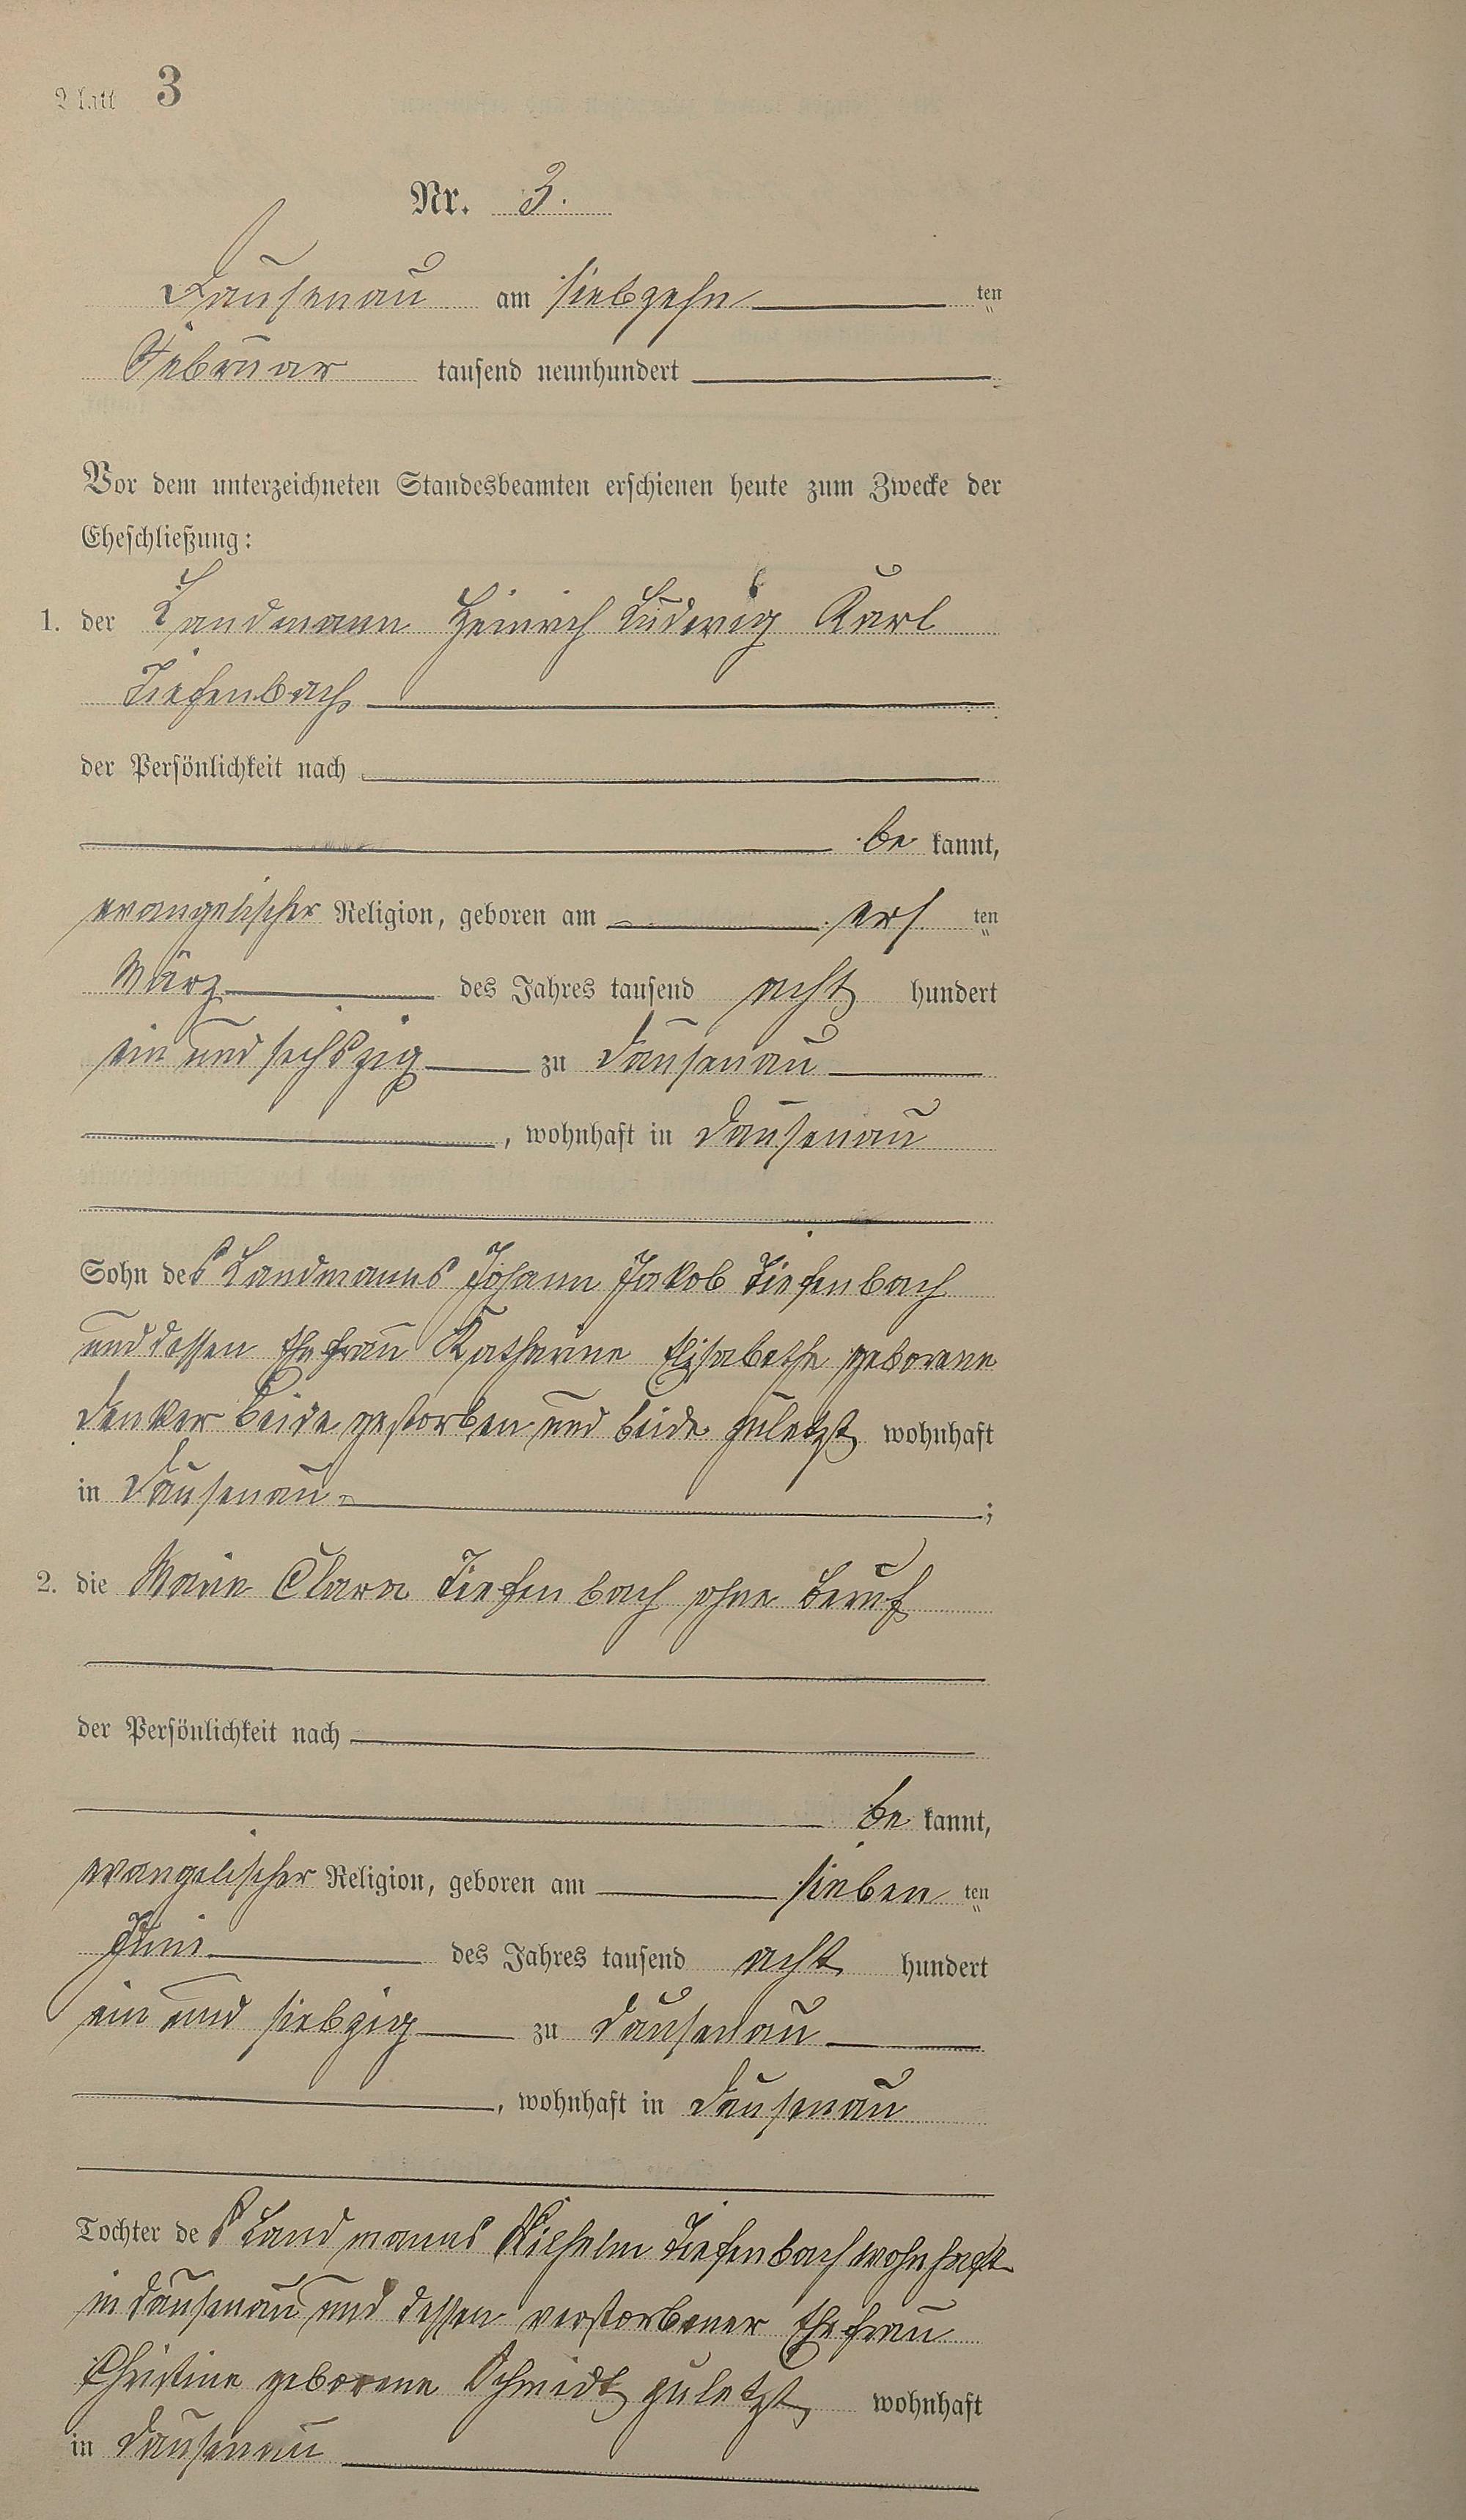 Blatt 3
Nr. 3.
Dausenau am siebzehn ten
Februar tausend neunhundert
Vor dem unterzeichneten Standesbeamten erschienen heute zum Zwecke der
Eheschließung:
1. der Landmann Heinrich Ludwig Karl
Tiefenbach
der Persönlichkeit nach
be kannt,
evangelischer Religion, geboren am ers ten
März des Jahres tausend acht hundert
ein und sechszig zu Dausenau
, wohnhaft in Dausenau
Sohn des Landmanns Johann Jakob Tiefenbach
und dessen Ehefrau Katharine Elisabethe geborene
Denker beide gestorben und beide zuletzt wohnhaft
in Dausenau ;
2. die Marie Clara Tiefenbach ohne Beruf
der Persönlichkeit nach
be kannt,
evangelischer Religion, geboren am sieben ten
Juni des Jahres tausend acht hundert
ein und siebzig zu Dausenau
, wohnhaft in Dausenau
Tochter des Landmanns Wilhelm Tiefenbach wohnhaft
in Dausenau und dessen verstorbener Ehefrau
Christine geborene Schmidt zuletzt wohnhaft
in Dausenau